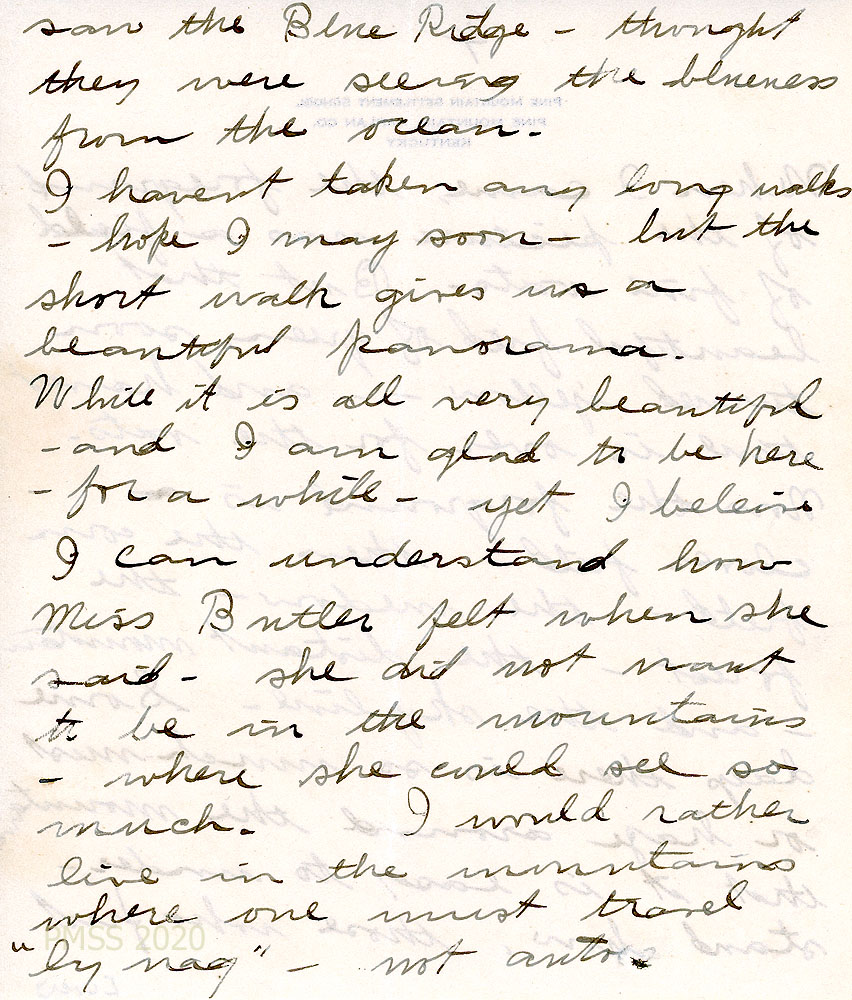 saw the Blue Ridge - thought
they were seeing the blueness
from the ocean.
I havent taken any long walks
- hope I may soon - but the
short walk gives us a
beautiful panorama.
While it is all very beautiful
- and I am glad to be here
- for a while - yet I beleive
I can understand how
Miss Butler felt when she
said - she did not want
to be in the mountains
- where she could see so
much. I would rather
live in the mountains
where one must travel
PMSS 2020
"by nag" - not auto.